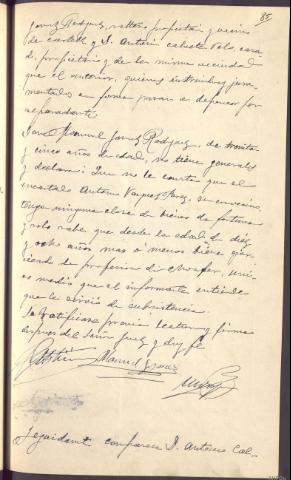 85
Gomez Rodriguez, soltero, propietario y vecino
de Castell y D. Antonio Calvete Polo, casa-
do, propietario y de la misma vecindad
que el anterior, quienes instruidos jura-
mentados en forma pasan a deponer por
separadamente
Don Manuel Gomez Rodriguez, de treinta
y cinco años de edad, no tiene generales
y declara: Que no le consta que el
encartado Antonio Vazquez Perez, su convecino,
tenga ninguna clase de bienes de fortuna
y solo sabe que desde la edad de diez
y ocho años mas o menos viene ejer-
ciendo la profesion de chofer, uni-
co medio que el informante entiende
que le sirvió de subsistencia.
Se ratifica previa lectura y firma
despues del Señor Juez y doy fe
Manuel Gomez
Seguidamente comparece D. Antonio Cal-